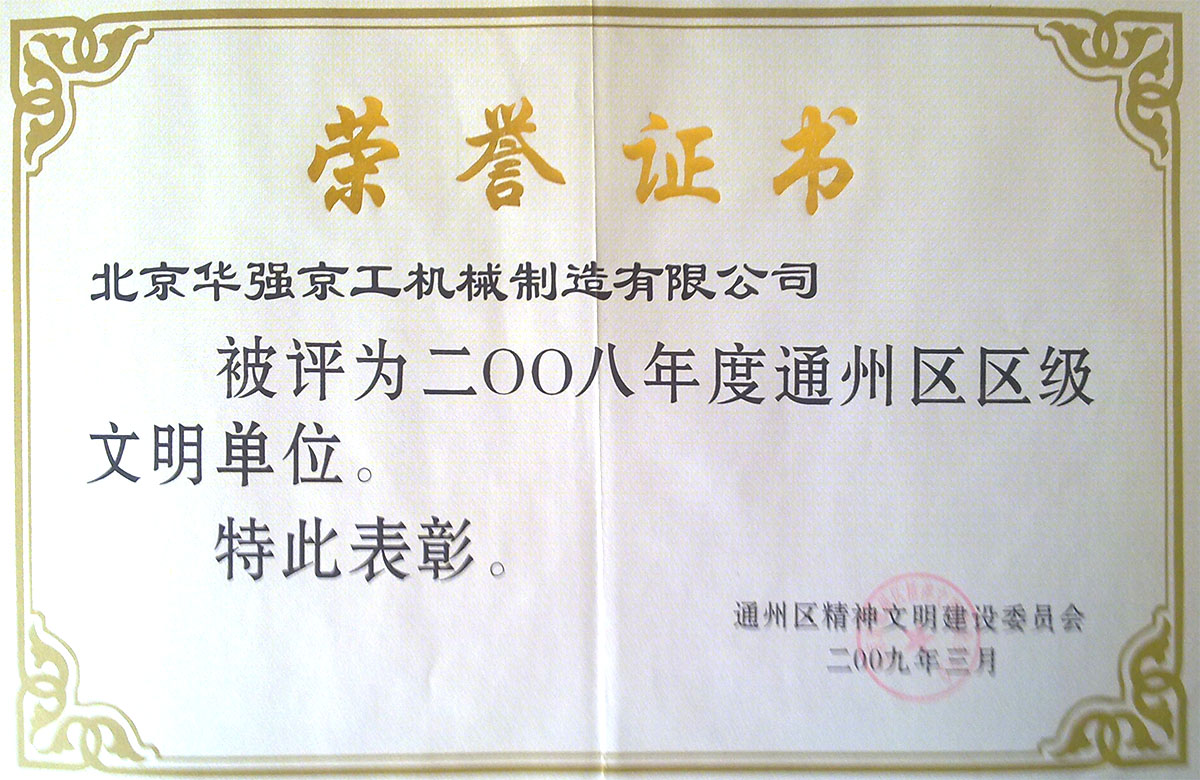 荣誉证书
北京华强京工机械制造有限公司
被评为二〇〇八年度通州区区级
文明单位。
特此表彰。
通州区精神文明建设委员会
二〇〇九年三月